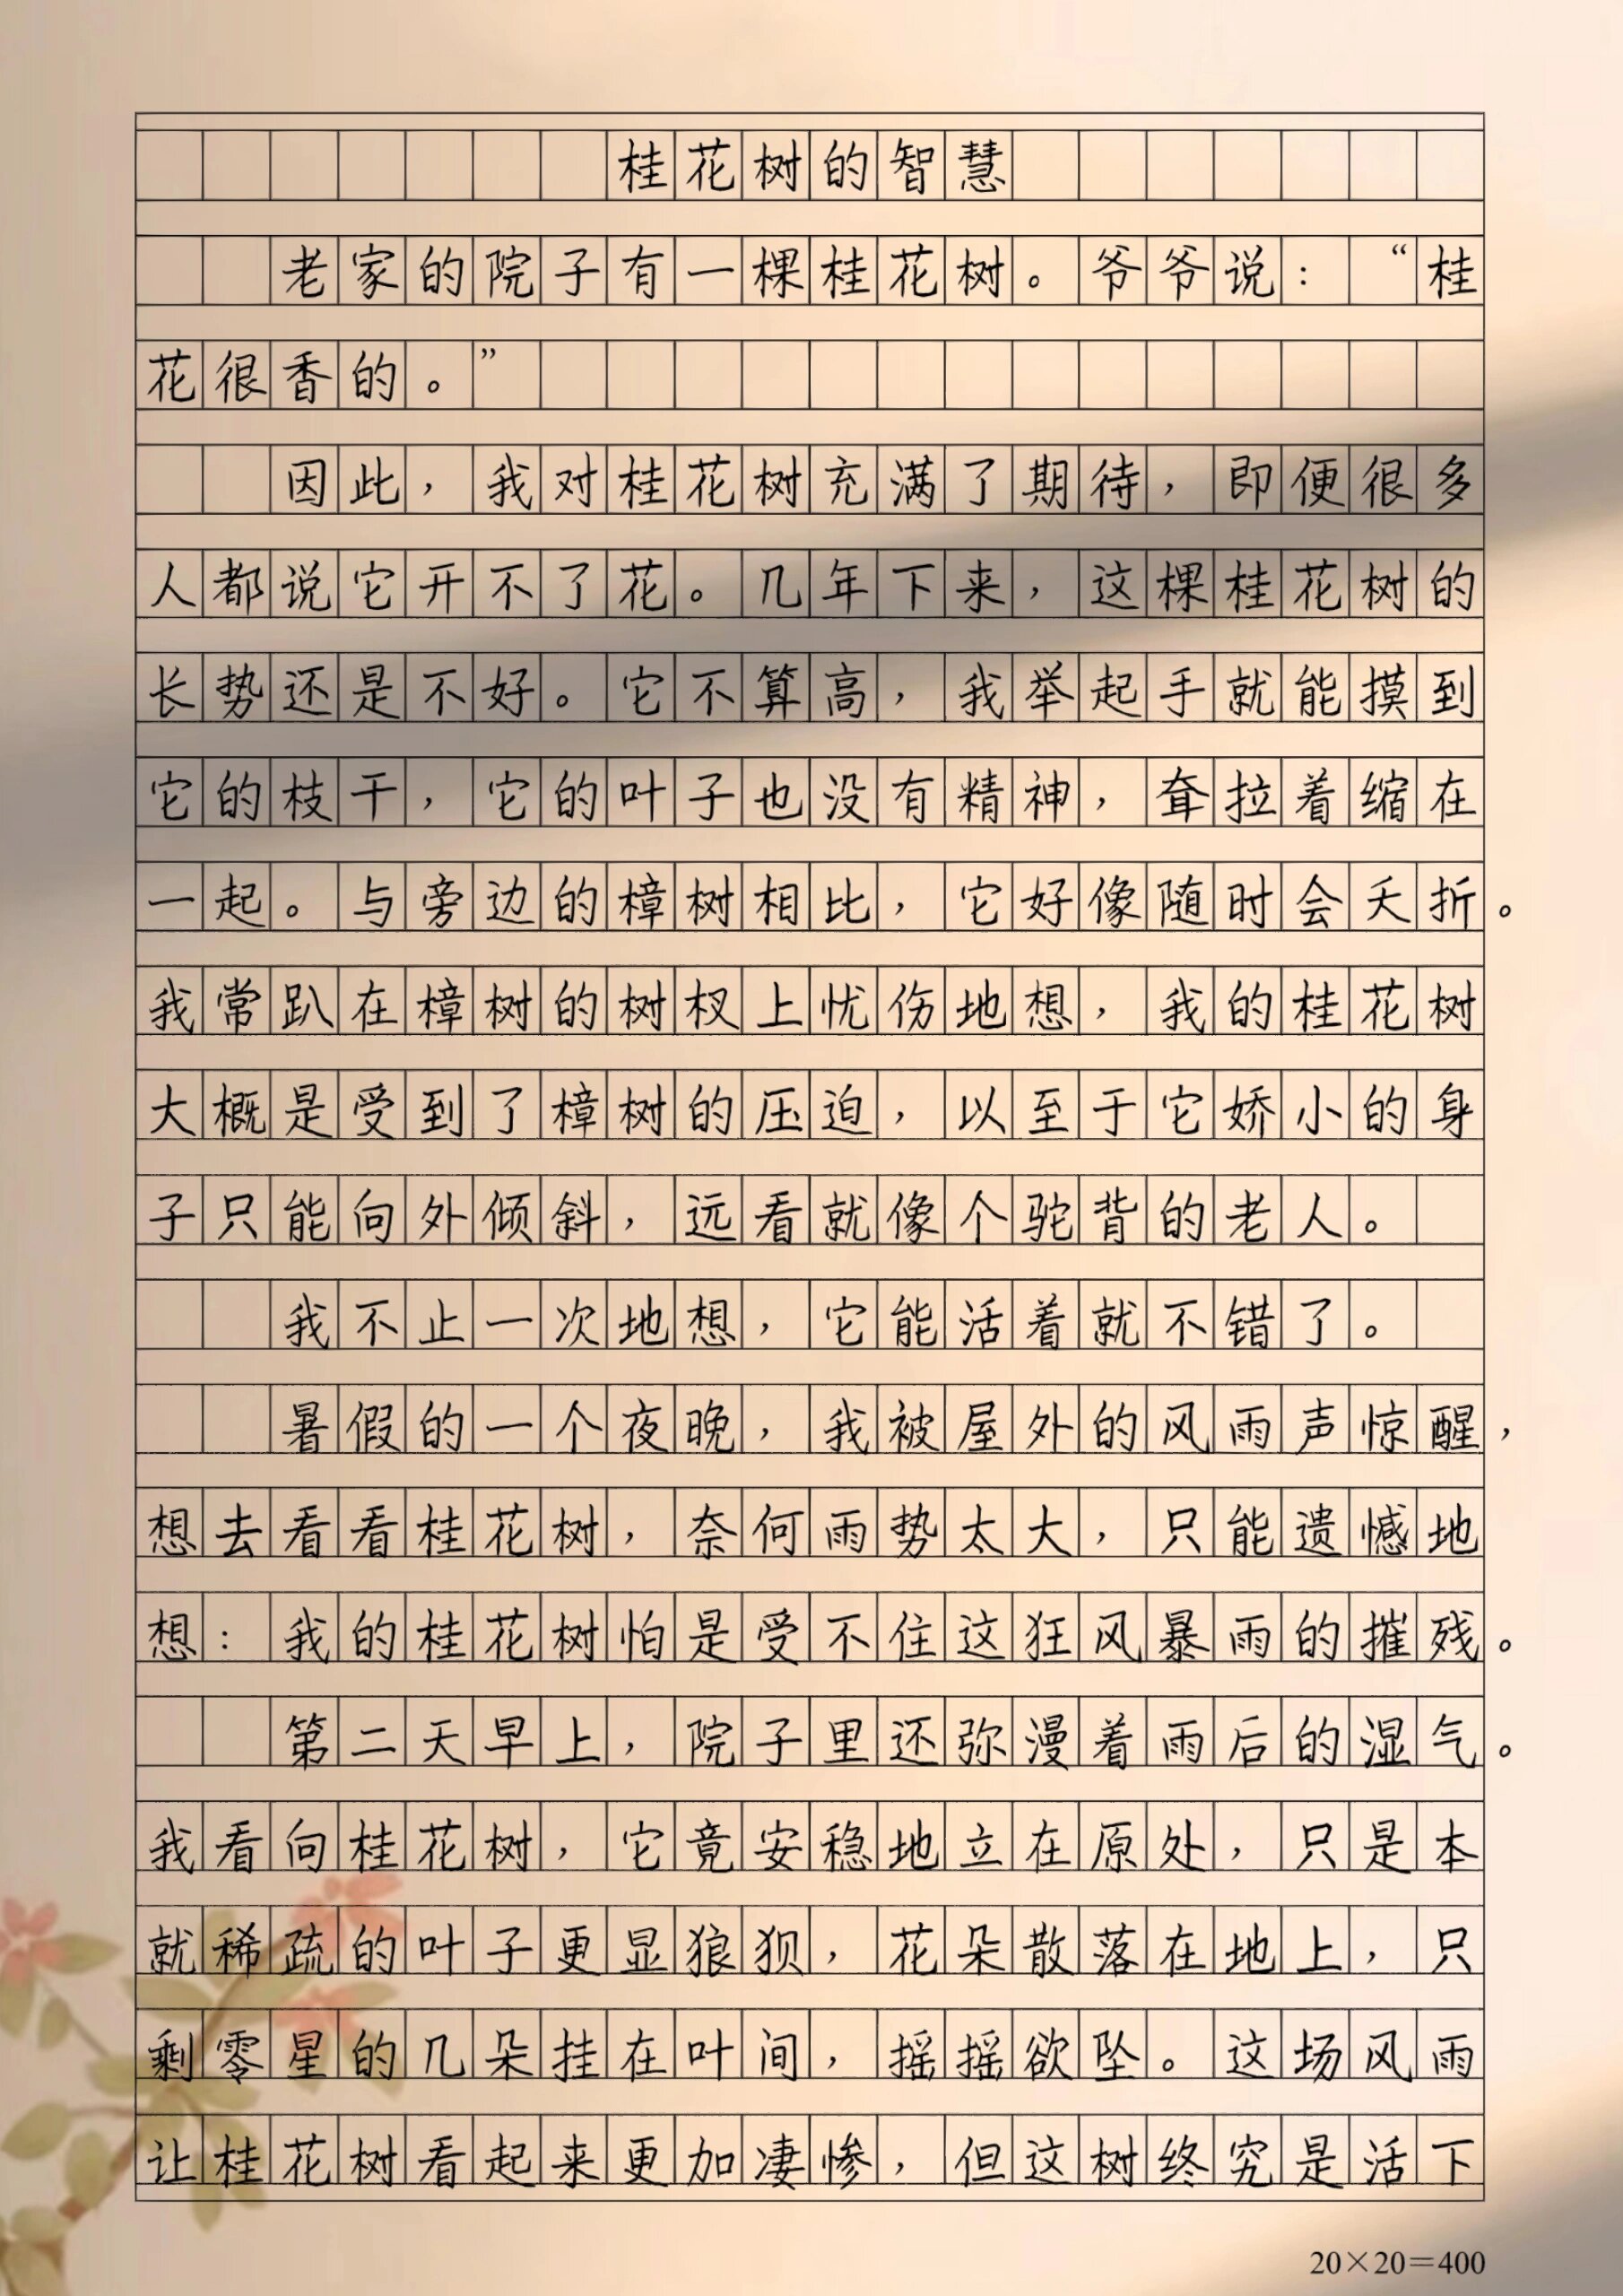 桂花树的智慧
老家的院子有一棵桂花树。爷爷说：“桂
花很香的。”
因此，我对桂花树充满了期待，即便很多
人都说它开不了花。几年下来，这棵桂花树的
长势还是不好。它不算高，我举起手就能摸到
它的枝干，它的叶子也没有精神，耷拉着缩在
一起。与旁边的樟树相比，它好像随时会夭折。
我常趴在樟树的树杈上忧伤地想，我的桂花树
大概是受到了樟树的压迫，以至于它娇小的身
子只能向外倾斜，远看就像个驼背的老人。
我不止一次地想，它能活着就不错了。
暑假的一个夜晚，我被屋外的风雨声惊醒，
想去看看桂花树，奈何雨势太大，只能遗憾地
想：我的桂花树怕是受不住这狂风暴雨的摧残。
第二天早上，院子里还弥漫着雨后的湿气。
我看向桂花树，它竟安稳地立在原处，只是本
就稀疏的叶子更显狼狈，花朵散落在地上，只
剩零星的几朵挂在叶间，摇摇欲坠。这场风雨
让桂花树看起来更加凄惨，但这树终究是活下
20×20＝400